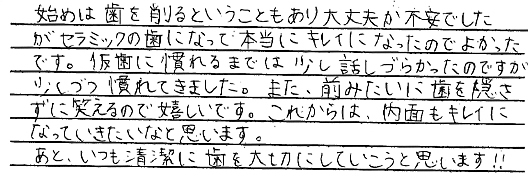 始めは歯を削るということもあり大丈夫か不安でした
がセラミックの歯になって本当にキレイになったのでよかった
です。仮歯に慣れるまでは少し話しづらかったのですが
少しづつ慣れてきました。また、前みたいに歯を隠さ
ずに笑えるので嬉しいです。これからは、内面もキレイに
なっていきたいなと思います。
あと、いつも清潔に歯を大切にしていこうと思います!!